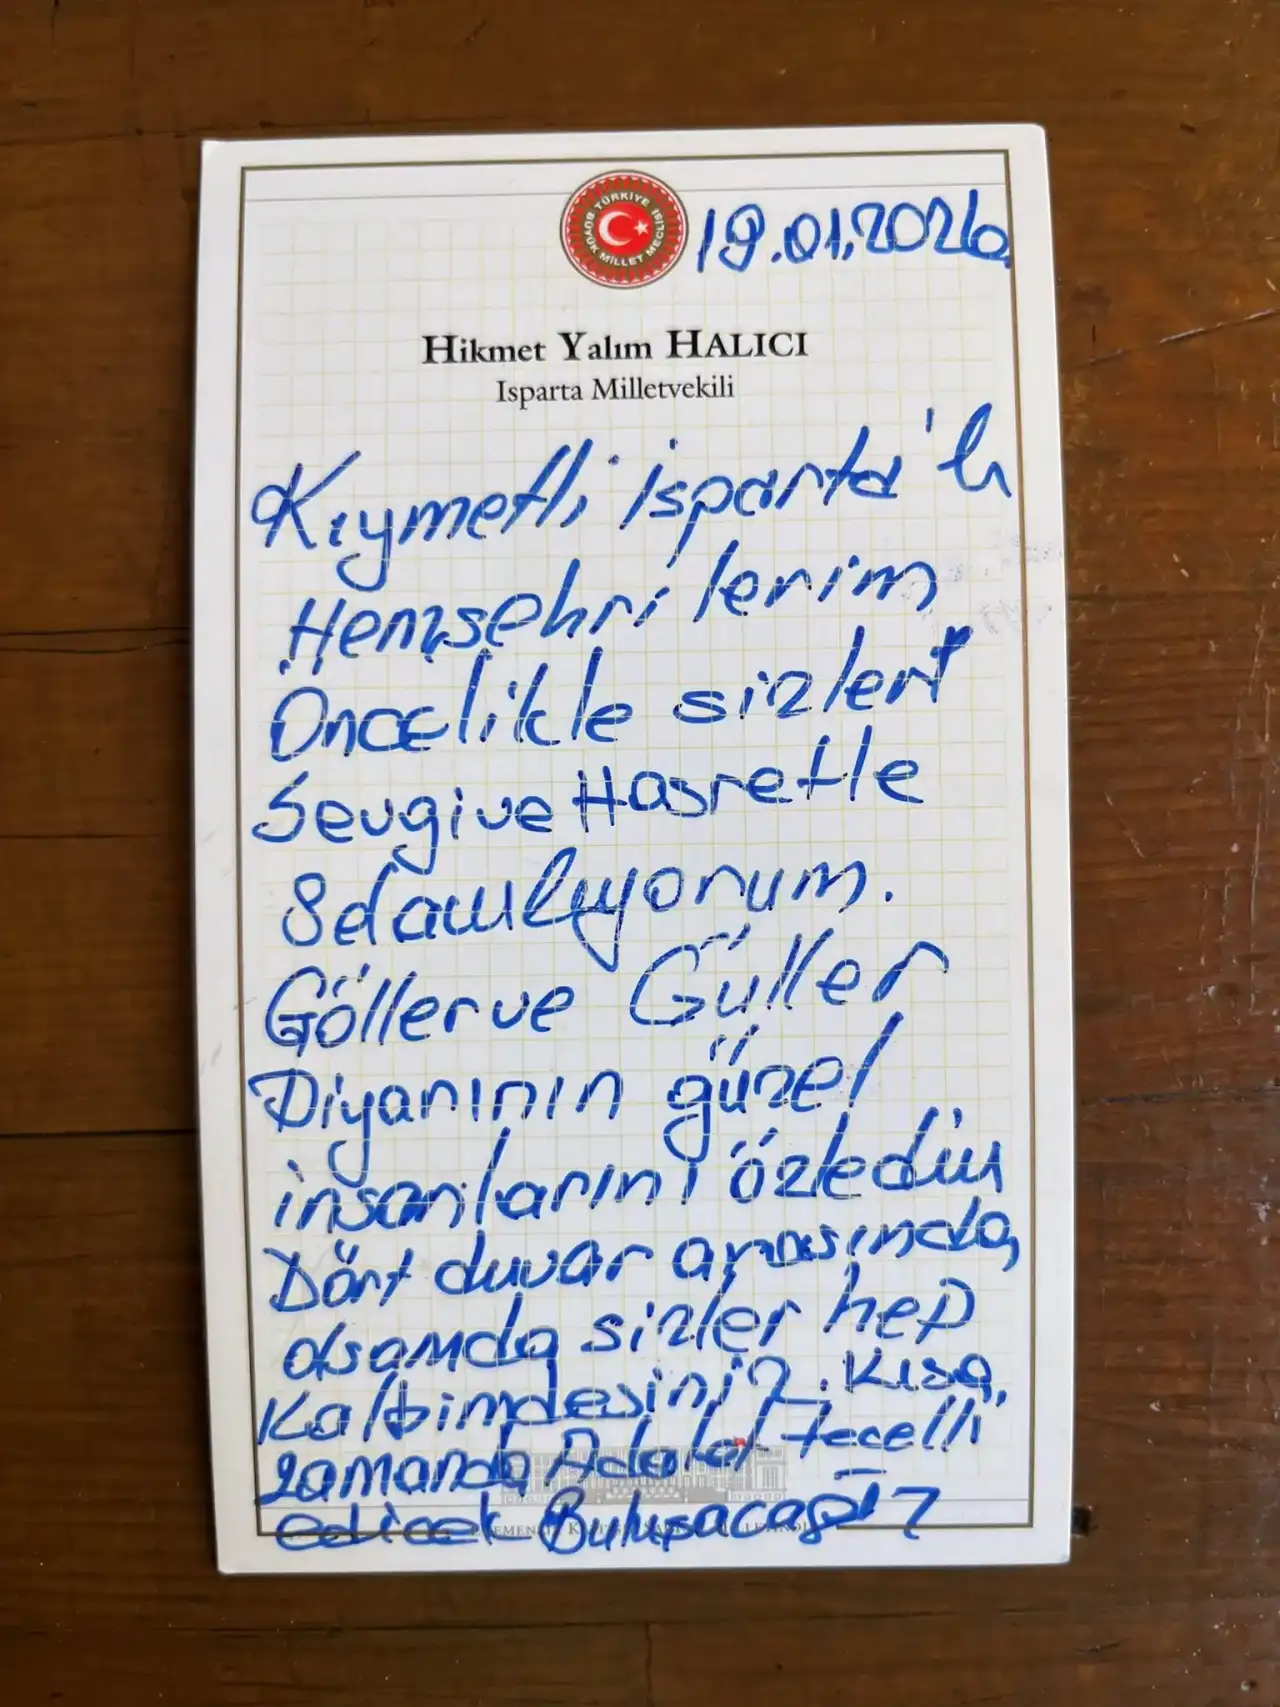 TÜRKİYE BÜYÜK MİLLET MECLİSİ
19.01.2026
Hikmet Yalım HALICI
Isparta Milletvekili
Kıymetli isparta'lı
Hemşehrilerim
Öncelikle sizleri
Sevgi ve Hasretle
Selamlıyorum.
Göller ve Güller
Diyarının güzel
insanlarını özledim
Dört duvar arasında
olsamda sizler hep
Kalbimdesiniz. Kısa
zamanda Adalet tecelli
edicek Buluşacağız